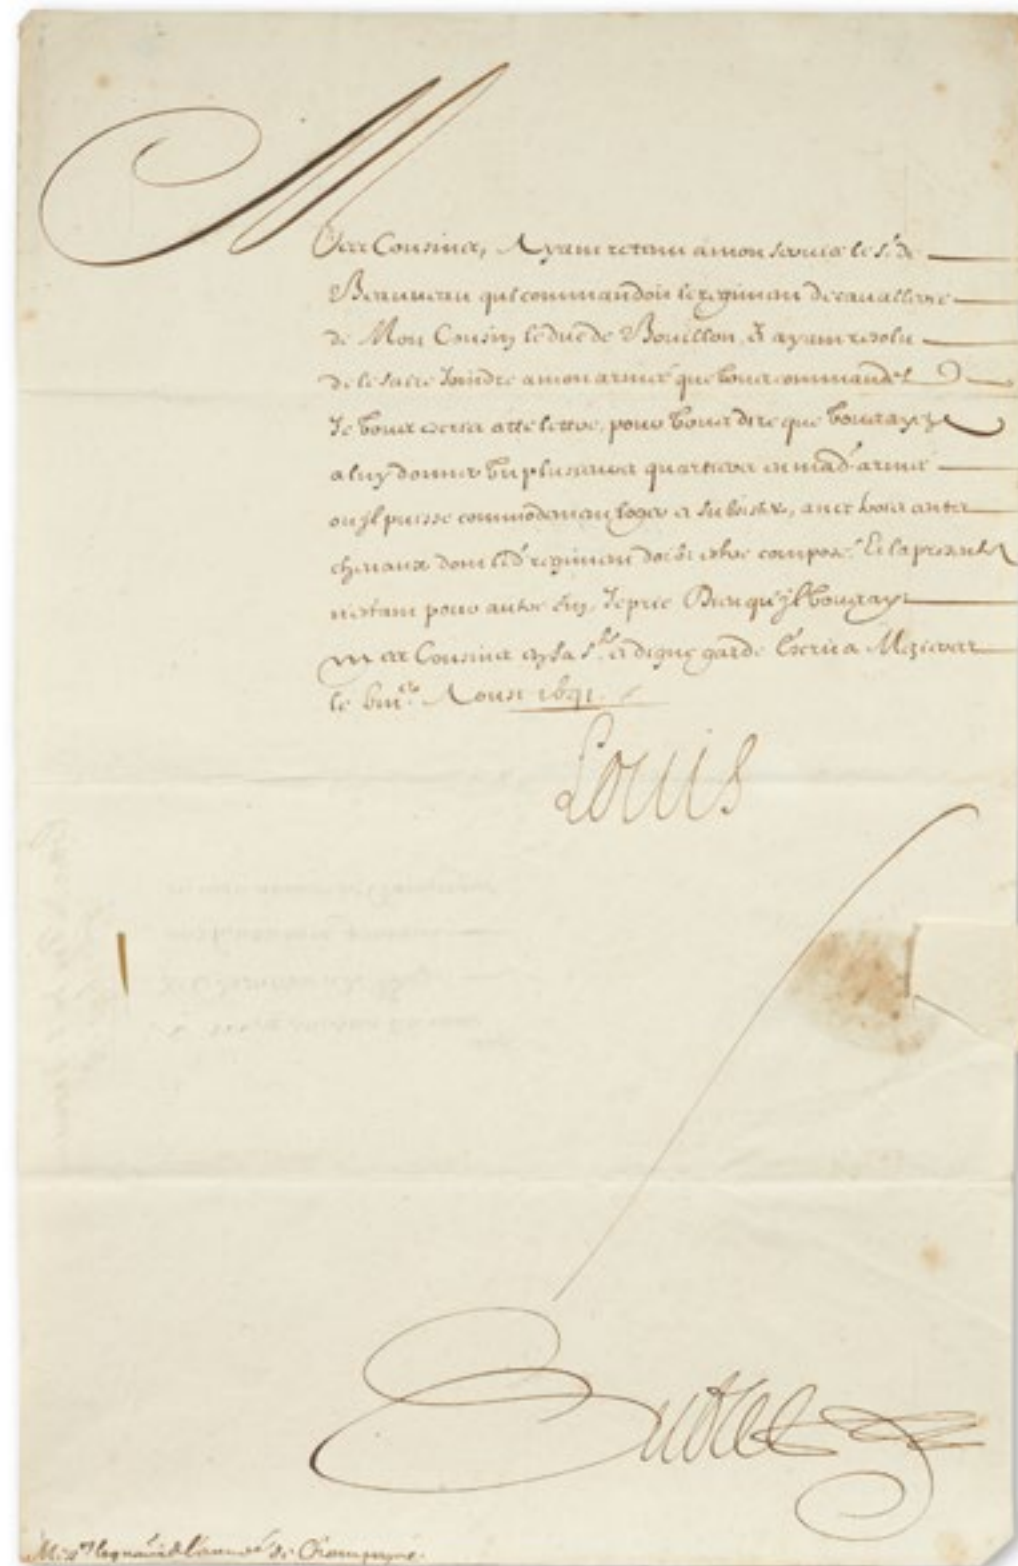 Mes Cousins, Ayant retenu a mon service le Sr. de
Beauveau qui commandoit le regiment de cavallerie
de Mon Cousin le duc de Bouillon, Et ayant resolu
de le faire Joindre a mon armée que vous commandez
Je vous escris cette lettre, pour vous dire que vous ayez
a luy donner un plusieurs quartiers en mad. armée
ou jl puisse commodement loger et subsister, avec trois cents
chevaux dont led. regiment doibt estre composé. Et la presente
n'estant pour autre fin, Je prie Dieu qu'jl vous ayt
mes Cousins en sa Ste. et digne garde Escrit a Mezieres
le viiie. Aoust 1641.
Louis
Sublet